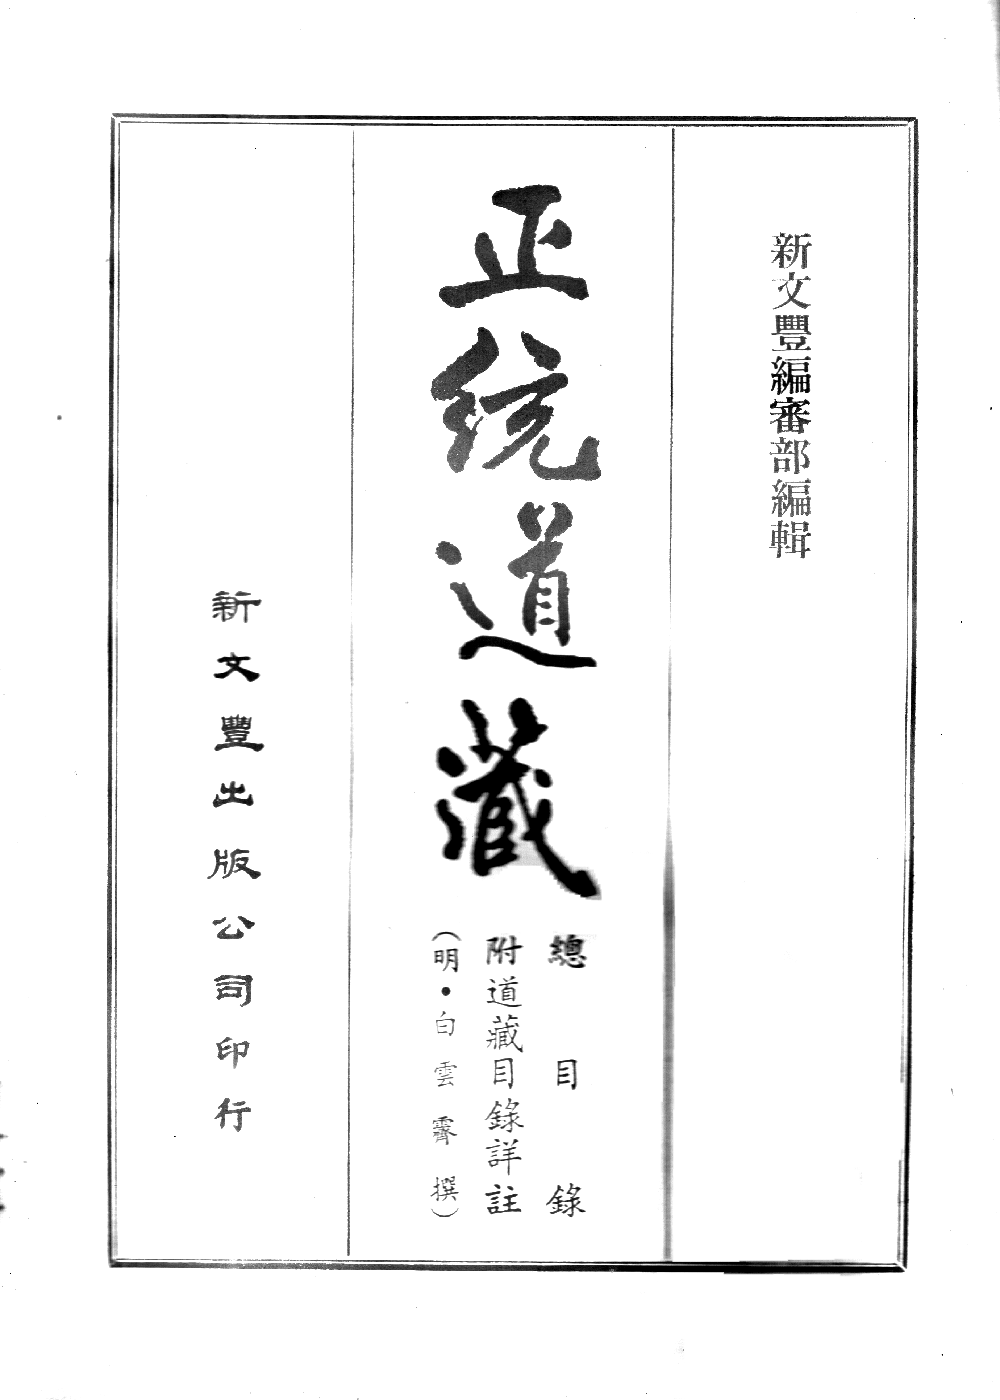 新文豐編審部編輯
正統道藏
總目錄
附道藏目錄詳註
（明・白雲霽撰）
新文豐出版公司印行